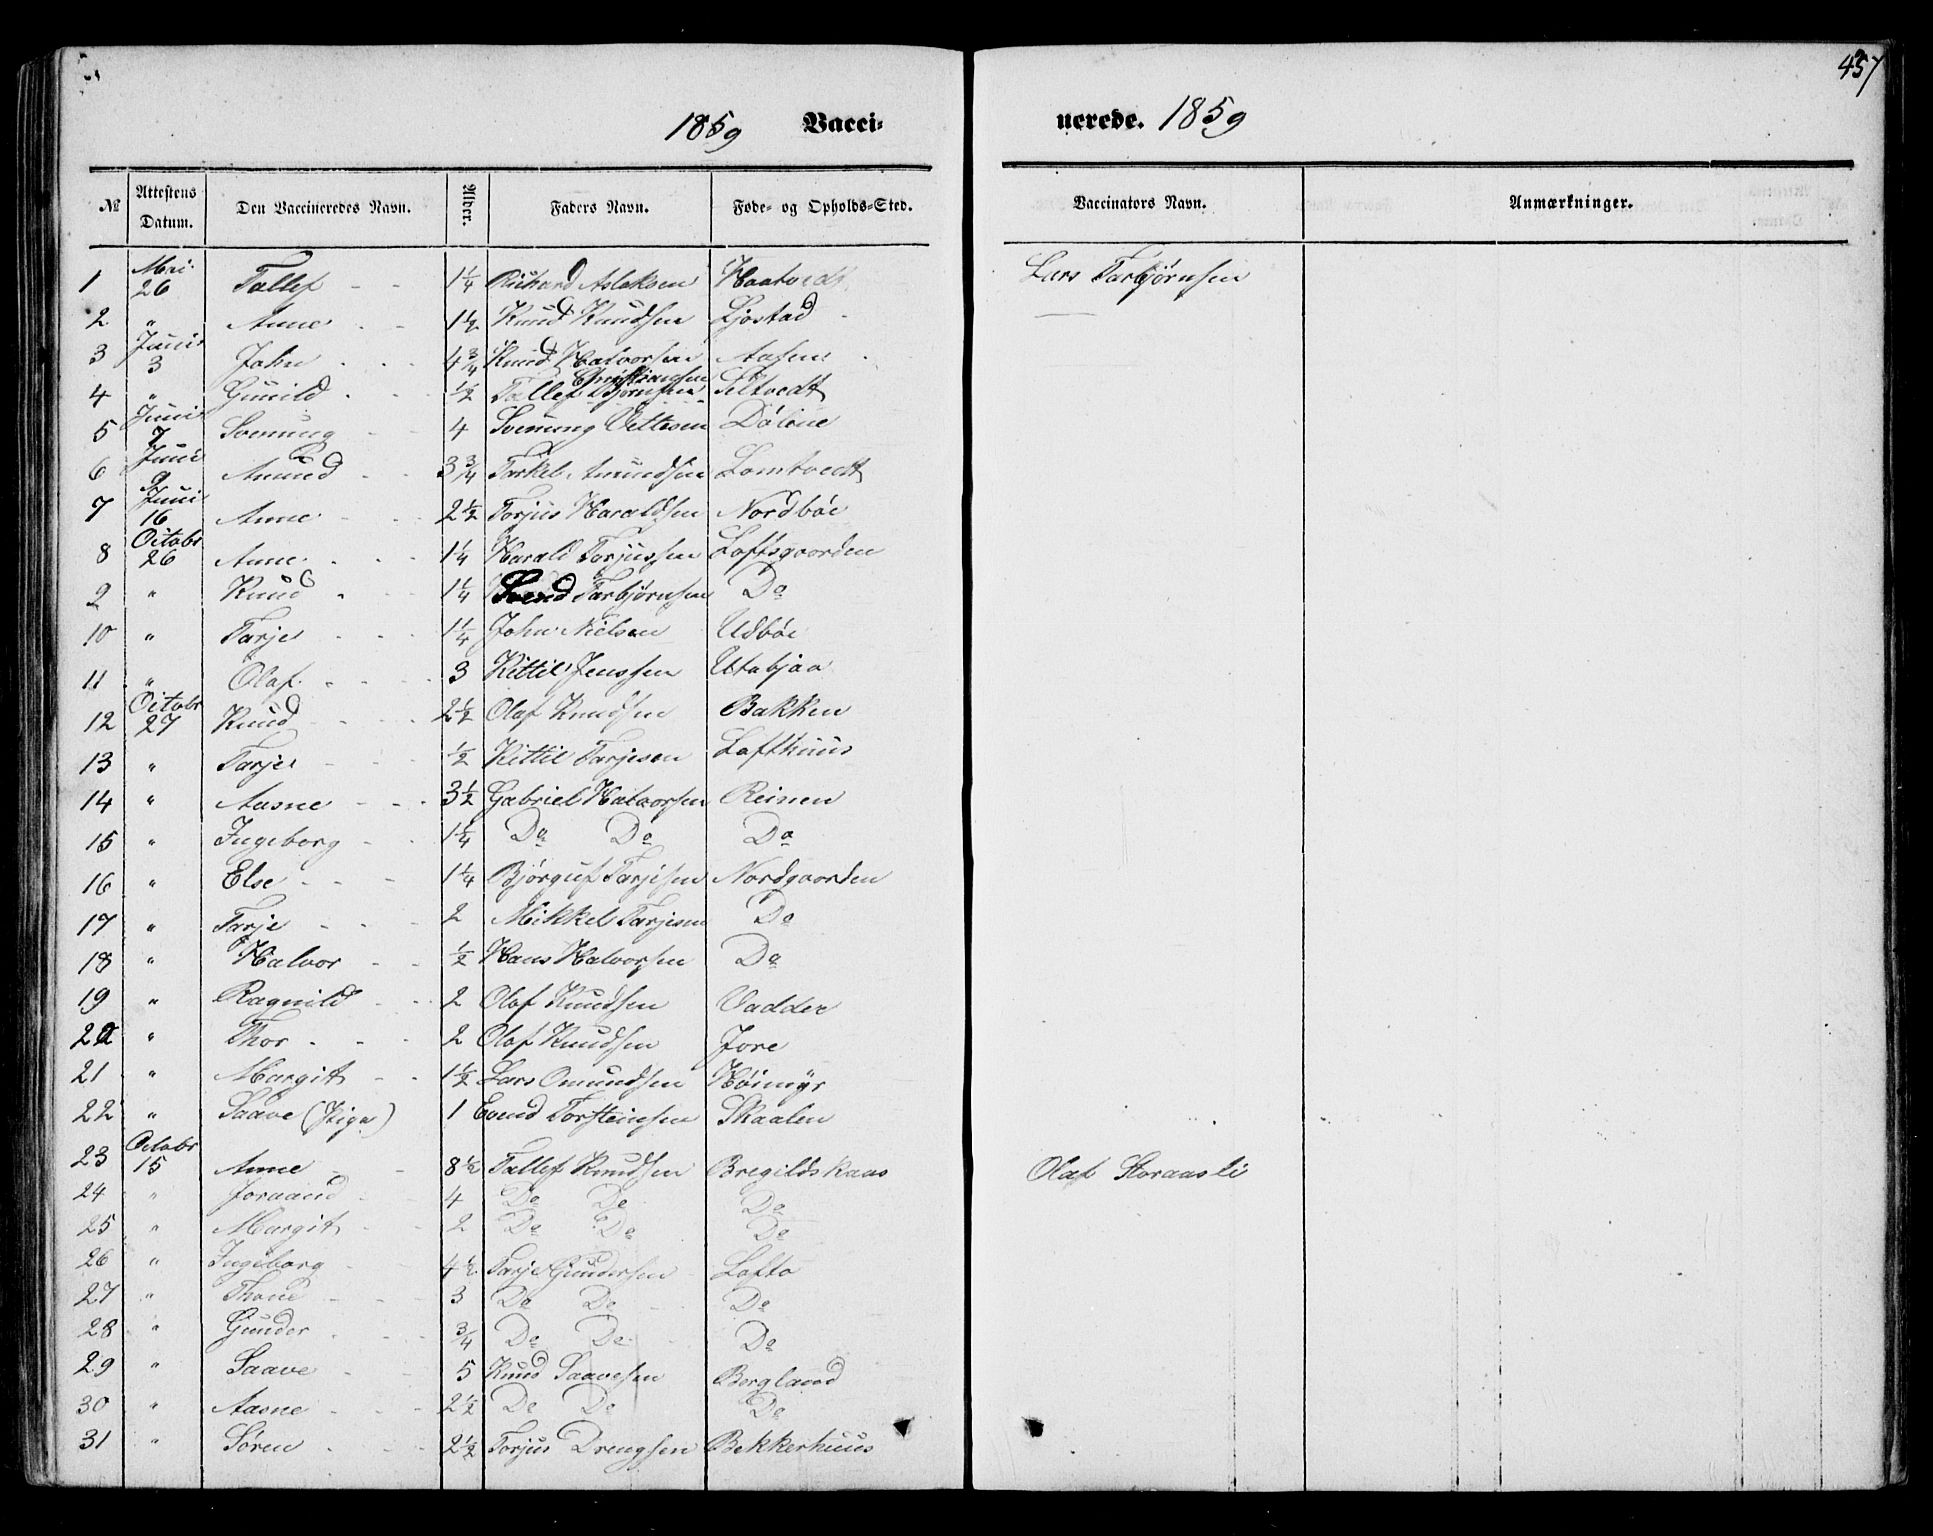 457
1859 Vacci- nerede. 1859
№ Attestens Datum. Den Vaccineredes Navn. Alder. Faders Navn. Føde- og Opholds-Sted. Vaccinators Navn. Anmærkninger.
1 Mai 26 Tallef - - 1 1/4 Richard Aslaksen Haatvedt Lars Tarbjørnsen
2 " Anne - - 1 1/2 Knud Knudsen Ljostad
3 Juni 3 John - - - 4 3/4 Knud Halvorsen Aasen
4 " Gunild - - 1/2 Tallef Bjørnsen Christiansen Feltvedt
5 Juni 7 Svenung - - 4 Svenung Vettesen Dølene
6 Juni 9 Amund - - 3 3/4 Torkel Amundsen Lomtvedt
7 Juni 16 Anne - - - 2 1/2 Torjus Haraldsen Nordbøe
8 Octobr 26 Anne - - - 1 1/4 Harald Torjussen Loftsgaarden
9 " Knud - - 1 1/4 Svend Tarbjørnsen Do
10 " Tarje - - - 1 1/4 John Nielsen Udbøe
11 " Olaf - - - 3 Kittil Jenssen Utabjaa
12 Octobr 27 Knud - - - 2 1/2 Olaf Knudsen Bakken
13 " Tarje - - - 1/2 Kittil Tarjesen Lofthuus
14 " Aasne - - - 3 1/2 Gabriel Halvorsen Reinen
15 " Ingeborg - - 1 1/4 Do Do Do
16 " Else - - - 1 1/4 Bjørguf Tarjesen Nordgaarden
17 " Tarje - - - 2 Mikkel Tarjesen Do
18 " Halvor - - 1/2 Hans Halvorsen Do
19 " Ragnild - - 2 Olaf Knudsen Vadder
20 " Thor - - - 2 Olaf Knudsen Jore
21 " Margit - - 1 1/2 Lars Omundsen Høimyr
22 " Saave (Pige) 1 Evend Torsteinsen Skaalen
23 Octobr 15 Anne - - 8 1/2 Tallef Knudsen Bregildskaas Olaf Storaasli
24 " Joraand - - 4 Do Do Do
25 " Margit - - 2 Do Do Do
26 " Ingeborg - - 4 1/2 Tarje Gundersen Lofto
27 " Thone - - - 3 Do Do Do
28 " Gunder - - - 3/4 Do Do Do
29 " Saave - - 5 Knud Saavesen Bergland
30 " Aasne - - - 2 1/2 Do Do Do
31 " Søren - - - 2 1/2 Torjus Drengsen Bekkerhuus